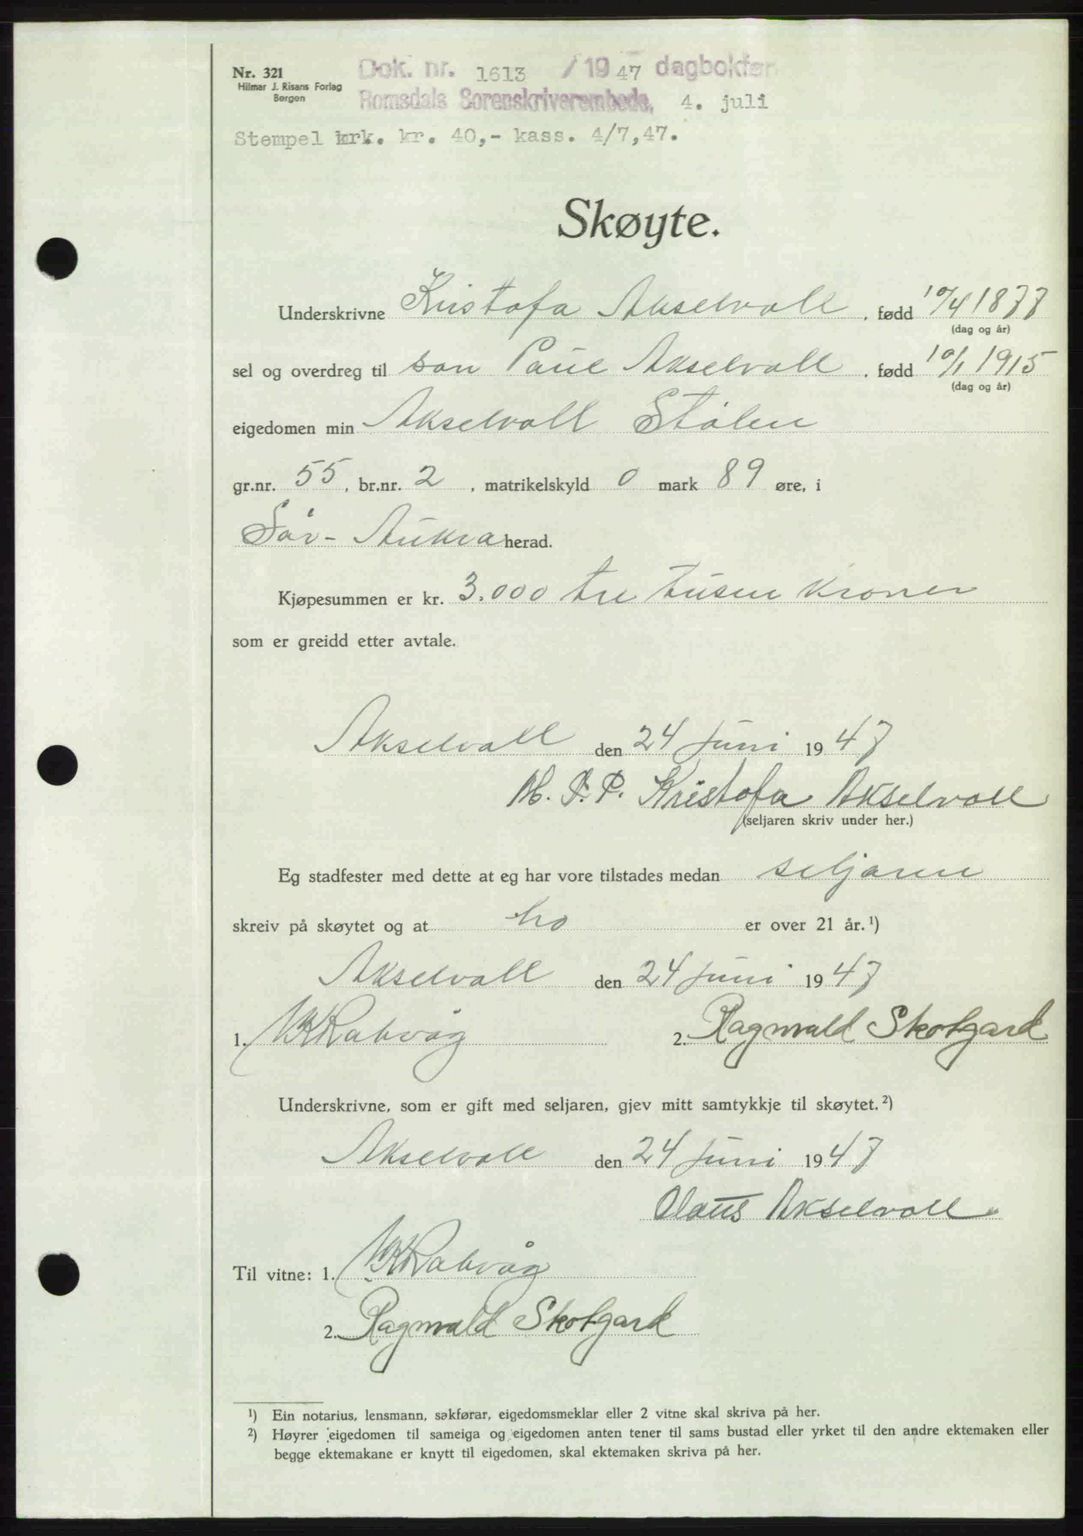 Nr. 321
Hilmar J. Risans Forlag
Bergen
Dok. nr. 1613 / 1947 dagbokfør
Romsdals Sorenskriverembede, 4. juli
Stempel mrk. kr. 40,- kass. 4/7,47.
Skøyte.
Underskrivne Kristofa Akselvoll, fødd 10/4 1877
(dag og år)
sel og overdreg til son Paul Akselvoll, fødd 10/1 1915
(dag og år)
eigedomen min Akselvoll Stålen
gr.nr. 55, br.nr. 2, matrikelskyld 0 mark 89 øre, i
Sør-Aukra herad.
Kjøpesummen er kr. 3.000 tre tusen kroner
som er greidd etter avtale.
Akselvoll den 24 juni 1947
M. P. P. Kristofa Akselvoll
(seljaren skriv under her.)
Eg stadfester med dette at eg har vore tilstades medan seljaren
skreiv på skøytet og at ho er over 21 år.¹)
Akselvoll den 24 juni 1947
1. Rabvåg 2. Ragnvald Skotgard
Underskrivne, som er gift med seljaren, gjev mitt samtykkje til skøytet.²)
Akselvoll den 24 juni 1947
Olaus Akselvoll.
Til vitne: 1. Rabvåg
2. Ragnvald Skotgard
¹) Ein notarius, lensmann, sakførar, eigedomsmeklar eller 2 vitne skal skriva på her.
²) Høyrer eigedomen til sameiga og eigedomen anten tener til sams bustad eller yrket til den andre ektemaken eller
begge ektemakane er knytt til eigedomen, skal ektemaken skriva på her.